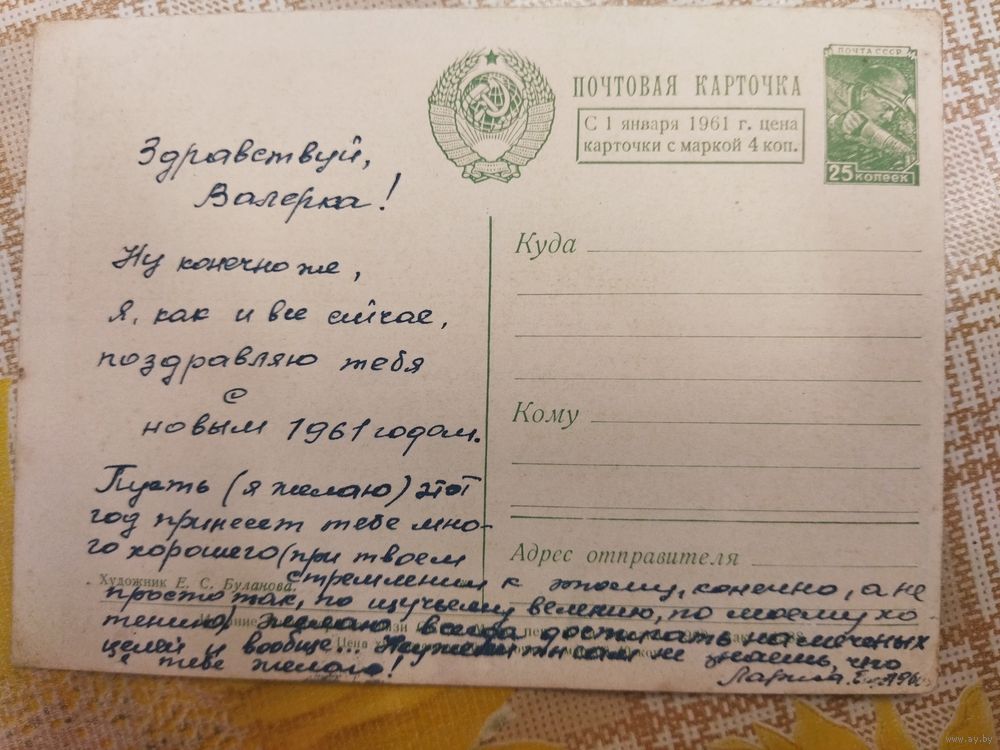 ПОЧТА СССР
25 КОПЕЕК
ПОЧТОВАЯ КАРТОЧКА
С 1 января 1961 г. цена
карточки с маркой 4 коп.
Здравствуй,
Валерка!
Ну конечно же,
я, как и все сейчас,
поздравляю тебя
с
новым 1961 годом.
Пусть (я желаю) этот
год принесет тебе мно-
го хорошего (при твоем
стремлении к этому, конечно, а не
просто так, по щучьему велению, по моему хо
тению) желаю всегда достигать намеченых
целей и вообще... знаешь, что
я тебе желаю!
Лариса.
Куда
Кому
Адрес отправителя
Художник Е. С. Буланова.
www.ay.by